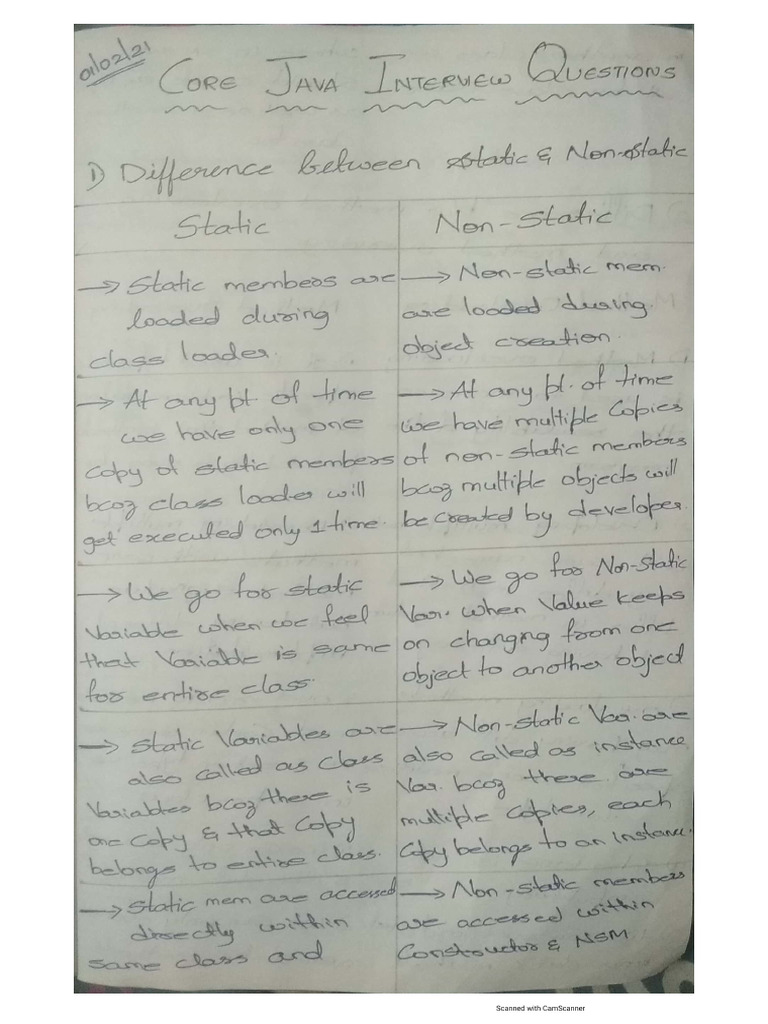 01/02/21
CORE JAVA INTERVIEW QUESTIONS
1) Difference between static & Non-static
Static
→ Static members are
loaded during
class loader.
→ At any pt of time
we have only one
copy of static members
bcoz class loader will
get executed only 1 time.
→ We go for static
Variable when we feel
that Variable is same
for entire class.
→ Static Variables are
also called as class
Variables bcoz there is
one copy & that copy
belongs to entire class.
→ Static mem are accessed
directly within
same class and
Non-Static
→ Non-static mem.
are loaded during
object creation.
→ At any pt. of time
we have multiple copies
of non-static members
bcoz multiple objects will
be created by developer.
→ We go for Non-Static
Var. when Value keeps
on changing from one
object to another object
→ Non-static Var. are
also called as instance
Var. bcoz there are
multiple copies, each
copy belongs to an instance.
→ Non-static members
are accessed within
Constructor & NSM
Scanned with CamScanner